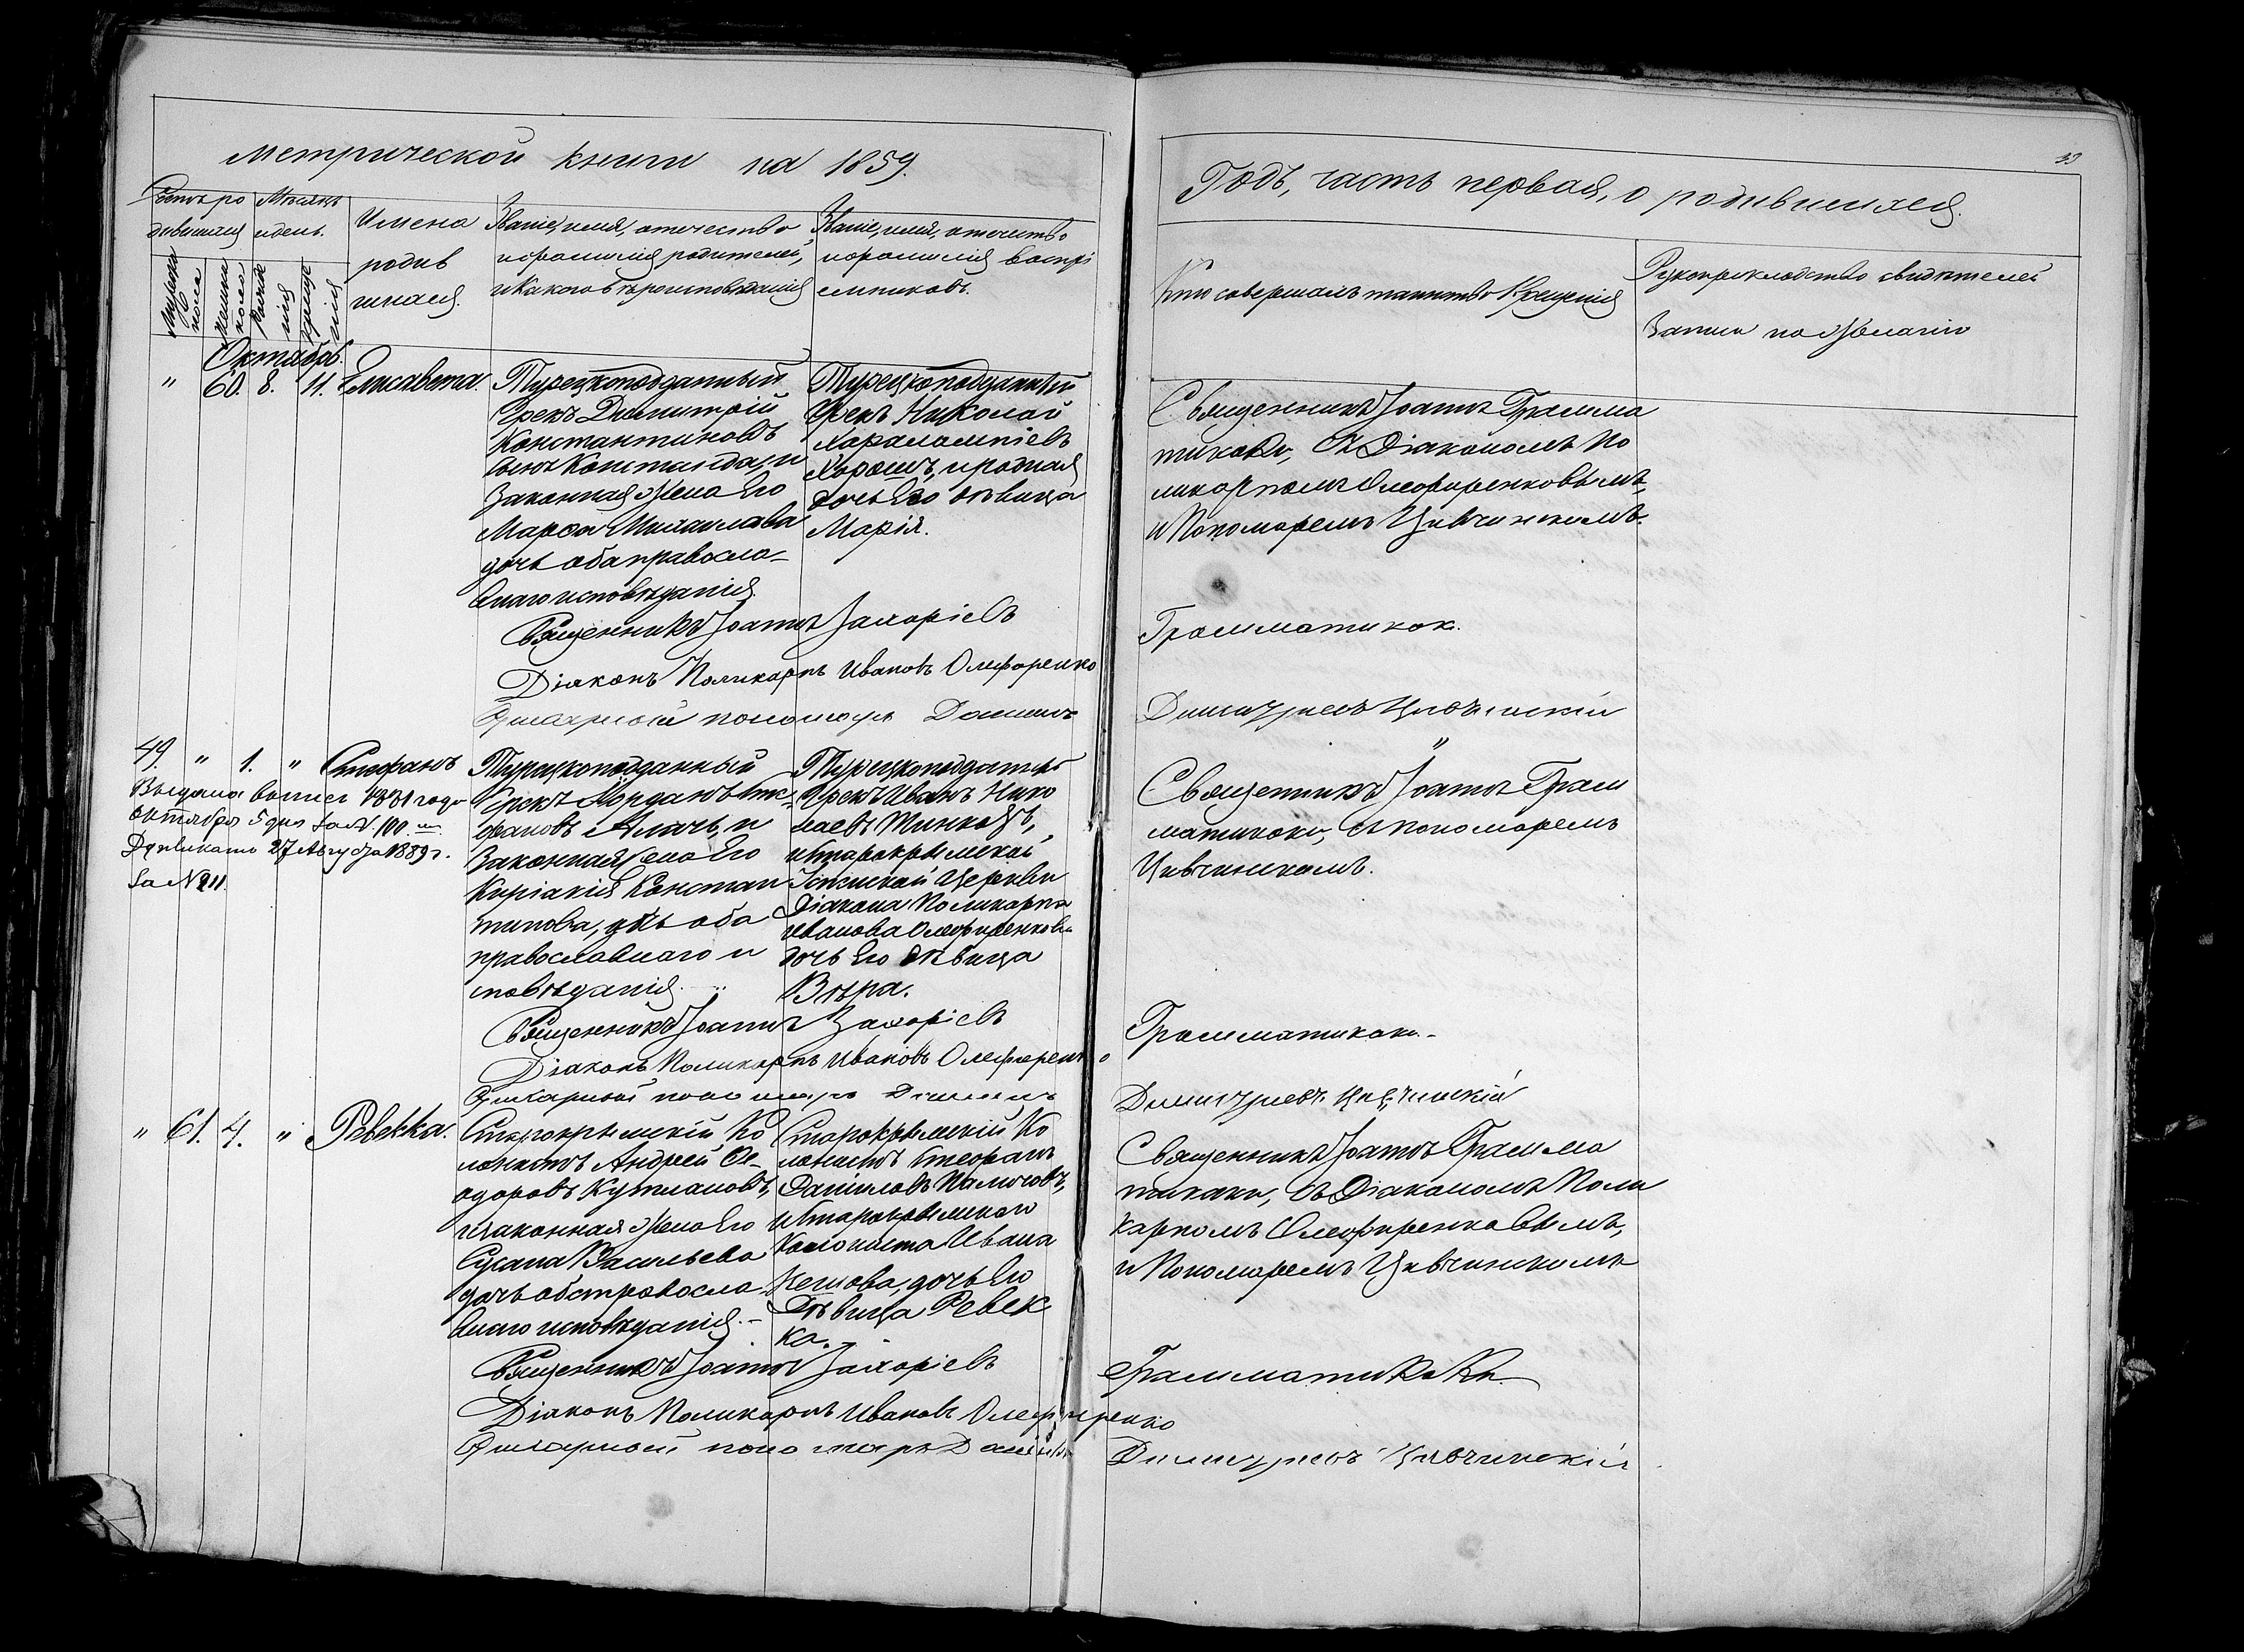 Метрической книги на 1859.
Годъ, часть первая, о родившихся.
Счетъ ро
дившихся
Мужска
пола
Женска
пола
Мѣсяцъ
и день.
Рожде
нія
Креще
нія
Имена
родив
шихся.
Званіе, имя, отечество
и фамилія родителей,
и какого вѣроисповѣданія
Званіе, имя, отечество
и фамилія воспрі
емниковъ.
Кто совершалъ таинство Крещенія
Рукоприкладство свидѣтелей
записи по желанію
Октябрь.
" 60. 8. 11. Елисавета.
Турецкоподданный
Грекъ Димитрій
Константиновъ
сынъ и
Законная жена Его
Марфа Михаилова
дочь оба правосла-
внаго исповѣданія.
Турецкоподданный
Грекъ Николай
Харалампіевъ
и родная
дочь Его дѣвица
Марія.
Священникъ Іоаннъ Грамма
тикаки, съ Діакономъ По
ликарпомъ Олефиренковымъ,
и Пономаремъ Цивчинскимъ.
Священникъ Іоаннъ Захаріевъ Грамматикаки.
Діаконъ Поликарпъ Ивановъ Олефиренко
пономарь Даніилъ Димитріевъ Цивчинскій
49. " 1. " Стефанъ
Выдана 1881 года
Октября 5 дня за №. 100.
Дубликатъ 27 Августа 1889 г.
за № 211.
Турецкоподданный
Грекъ Іорданъ Сте-
фановъ и
Законная жена Его
Киріакія Констан
тинова, дочь оба
православнаго и
сповѣданія.
Турецкоподданный
Грекъ Иванъ Нико
лаевъ
и Старокрымской
Успенской Церкви
Діакона Поликарпа
Иванова Олефиренкова
дочь Его дѣвица
Вѣра.
Священникъ Іоаннъ Грам
матикаки, съ пономаремъ
Цивчинскимъ.
Священникъ Іоаннъ Захаріевъ Грамматикаки.-
Діаконъ Поликарпъ Ивановъ Олефиренко
пономарь Даніилъ Димитріевъ Цивчинскій
" 61. 4. " Ревекка.
Старокрымскій Ко
лонистъ Андрей Ѳе-
одоровъ Куплановъ,
и законная жена Его
Сусана Васильева
дочь оба правосла-
внаго исповѣданія.-
Старокрымскій Ко
лонистъ Стефанъ
Даниловъ
и Старокрымскаго
Колониста Ивана
дочь Его
Дѣвица Ревек
ка.
Священникъ Іоаннъ Грамма
тикаки, съ Діакономъ Поли
карпомъ Олефиренковымъ,
и Пономаремъ Цивчинскимъ
Священникъ Іоаннъ Захаріевъ Грамматикаки.
Діаконъ Поликарпъ Ивановъ Олефиренко
пономарь Даніилъ Димитріевъ Цивчинскій